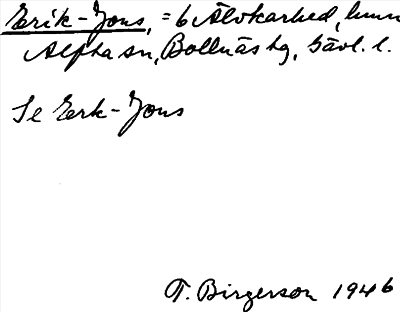 Erik-Jons, = 6 Älvkarhed, hmn
Alfta sn, Bollnäs tg, Gävl. l.
Se Erk-Jons
T. Birgerson 1946